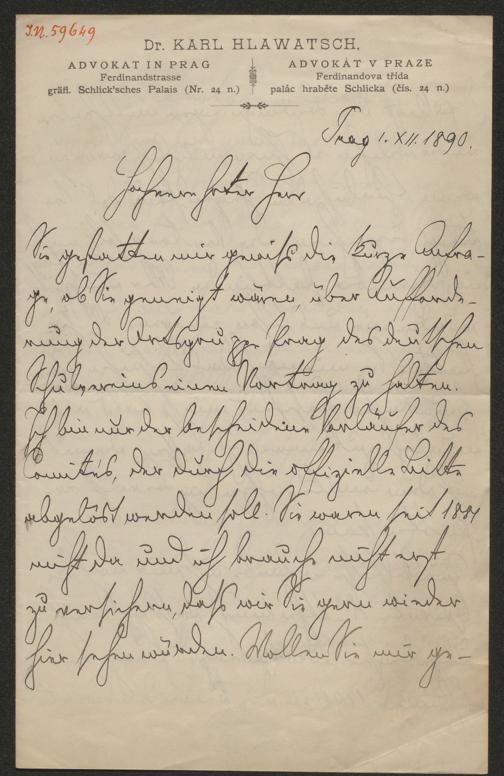 I.N. 59649
Dr. KARL HLAWATSCH,
ADVOKAT IN PRAG
Ferdinandstrasse
gräfl. Schlick'sches Palais (Nr. 24 n.)
ADVOKÁT V PRAZE
Ferdinandova třída
palác hraběte Schlicka (čís. 24 n.)
Prag 1. XII. 1890.
Hochverehrter Herr
Sie gestatten mir gewiß die kurze Anfra-
ge, ob Sie geneigt wären, über Aufforde-
rung der Ortsgruppe Prag des deutschen
Schulvereins einen Vortrag zu halten.
Ich bin nur der bescheidene Vorläufer des
Comités, der durch die offizielle Bitte
abgelöst werden soll. Sie waren seit 1881
nicht da und ich brauche nicht erst
zu versichern, daß wir Sie gern wieder
hier sehen würden. Wollen Sie mir ge-